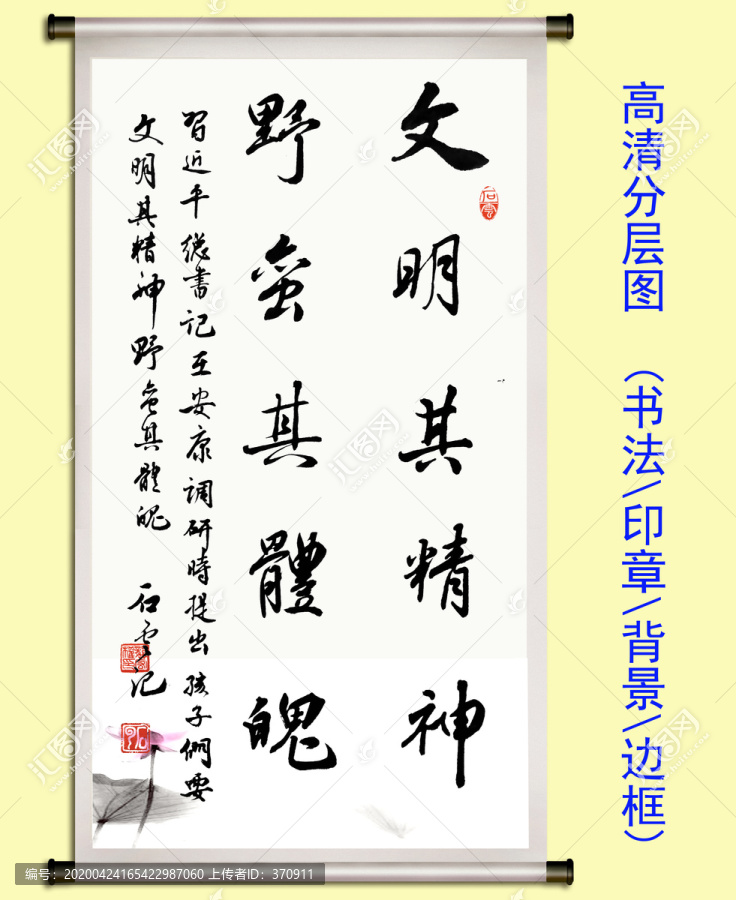 文明其精神
野蛮其體魄
習近平總書记在安康调研時提出孩子們要
文明其精神野蛮其體魄
石雲记
石雲
高清分层图（书法/印章/背景/边框）
汇图网
www.huitu.com
编号：20200424165422987060 上传者ID：370911